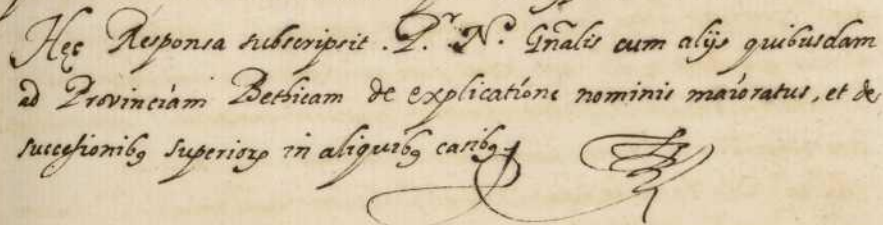 Hęc Responsa subscripsit .P.ʳ N.ʳ Gn̄alis cum alijs quibusdam
ad Provinciam Bethicam de explicatione nominis maioratus, et de
succesionibꝫ superiorꝝ in aliquibꝫ casibꝫ